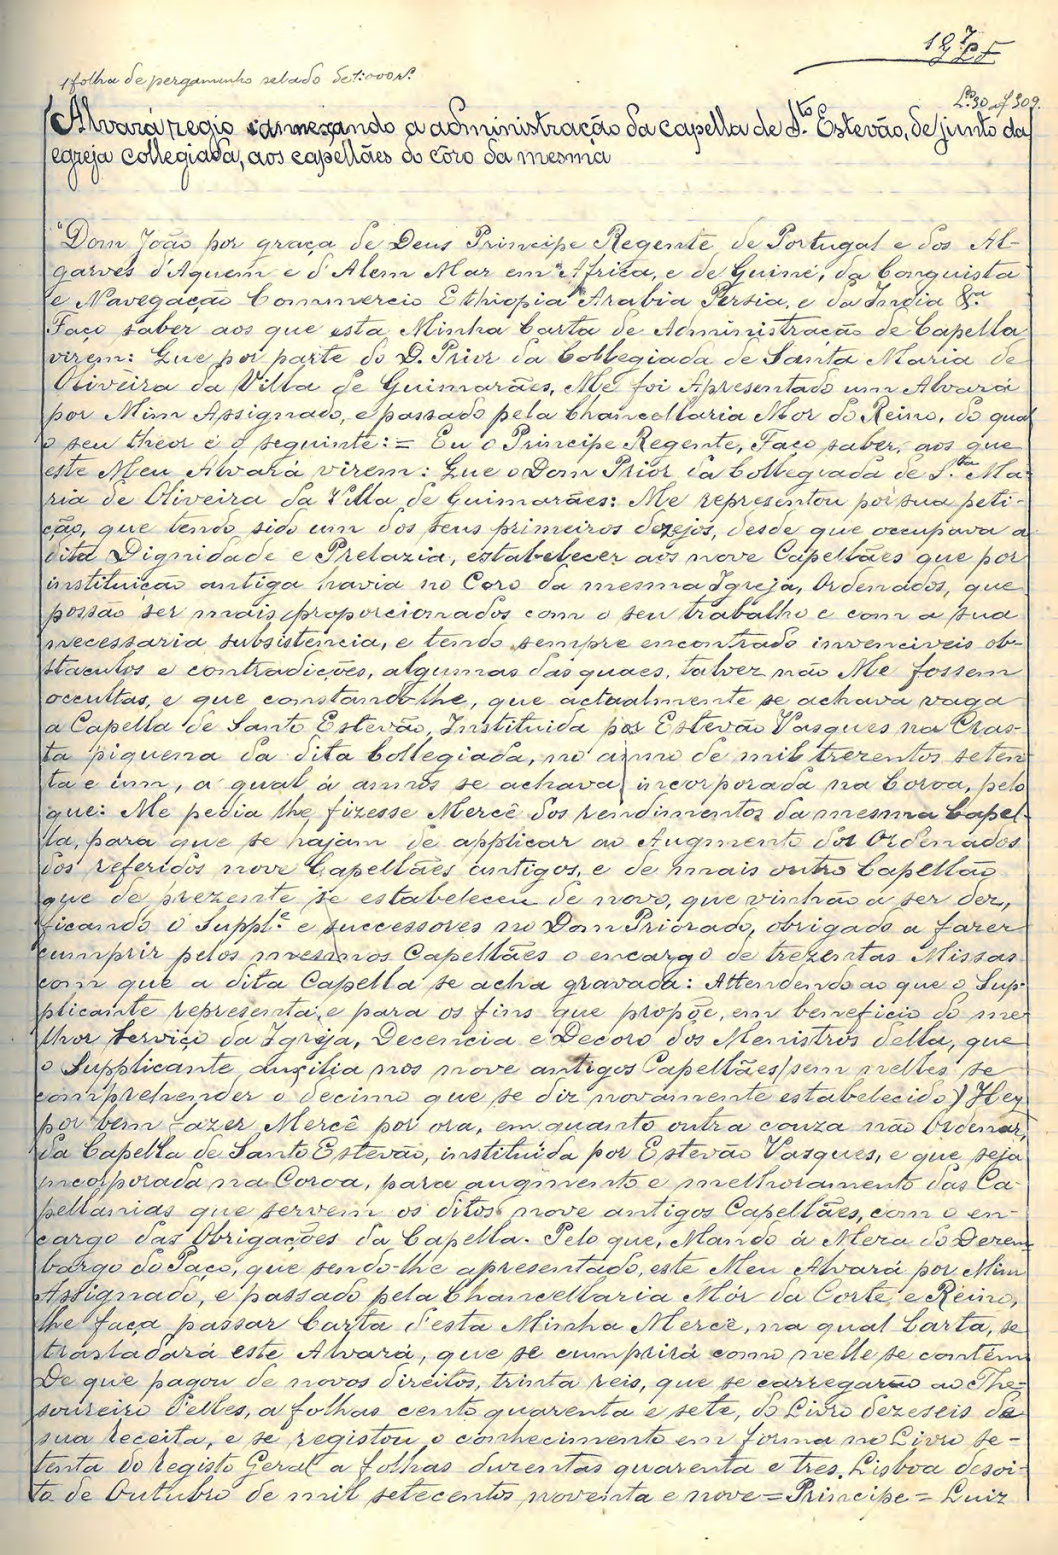 197
1 folha de pergaminho selado de 1:000 rs.
L.º 30 nº 309.
Alvará regio annexando a administração da capella de S.to Estevão, de junto da
egreja collegiada, aos capellães do côro da mesma
"Dom João por graça de Deus Principe Regente de Portugal e dos Al-
garves d'Aquem e d'Alem Mar em Africa, e de Guiné, da Conquista
e Navegação Commercio Ethiopia Arabia Persia, e da India &.a
Faço saber aos que esta Minha Carta de Administração de Capella
virem: Que por parte do D. Prior da Collegiada de Santa Maria de
Oliveira da Villa de Guimarães, Me foi Apresentado um Alvará
por Mim Assignado, e passado pela Chancellaria Mor do Reino, do qual
o seu theor é o seguinte: = Eu o Principe Regente, Faço saber, aos que
este Meu Alvará virem: Que o Dom Prior da Collegiada de S.ta Ma-
ria de Oliveira da Villa de Guimarães: Me representou por sua peti-
ção, que tendo sido um dos seus primeiros dezejos, desde que occupava a
dita Dignidade e Prelazia, estabelecer aos nove Capellães que por
instituição antiga havia no Coro da mesma Igreja, Ordenados, que
possão ser mais proporcionados com o seu trabalho e com a sua
necessaria subsistencia, e tendo sempre encontrado invenciveis ob-
staculos e contradições, algumas das quaes, talvez não Me fossem
occultas, e que constando-lhe, que actualmente se achava vaga
a Capella de Santo Estevão, Instituida por Estevão Vasques na Cras-
ta piquena da dita Collegiada, no anno de mil trezentos seten
ta e um, a qual á annos se achava incorporada na Coroa, pelo
que: Me pedia lhe fizesse Mercê dos rendimentos da mesma Capel-
la, para que se hajam de applicar ao Augmento dos Ordenados
dos referidos nove Capellães antigos, e de mais outro Capellão
que de prezente se estabeleceu de novo, que vinhão a ser dez,
ficando o Suppl.e e successores no Dom Priorado, obrigado a fazer
cumprir pelos mesmos Capellães o encargo de trezentas Missas
com que a dita Capella se acha gravada: Attendendo ao que o Sup-
plicante representa, e para os fins que propõe, em beneficio do me
lhor Serviço da Igreja, Decencia e Decoro dos Menistros della, que
o Supplicante auxilia nos nove antigos Capellães (sem nelles se
comprehender o decimo que se diz novamente estabelecido) Hey
por bem fazer Mercê por ora, emquanto outra couza não Ordenar,
da Capella de Santo Estevão, instituída por Estevão Vasques, e que seja
incorporada na Coroa, para augmento e melhoramento das Ca-
pellanias que servem os ditos nove antigos Capellães, com o en-
cargo das Obrigações da Capella. Pelo que, Mando á Meza do Dezem
bargo do Paço, que sendo-lhe apresentado, este Meu Alvará por Mim
Assignado, e passado pela Chancellaria Mór da Corte e Reino,
lhe faça passar Carta d'esta Minha Mercê, na qual Carta, se
trasladará este Alvará, que se cumprirá como nelle se contêm
De que pagou de novos direitos, trinta reis, que se carregarão ao The-
soureiro d'elles, a folhas cento quarenta e sete, do Livro dezeseis de
sua receita, e se registou o conhecimento em forma no Livro se-
tenta do registo Geral a folhas duzentas quarenta e tres. Lisboa desoi-
to de Outubro de mil setecentos noventa e nove = Principe = Luiz